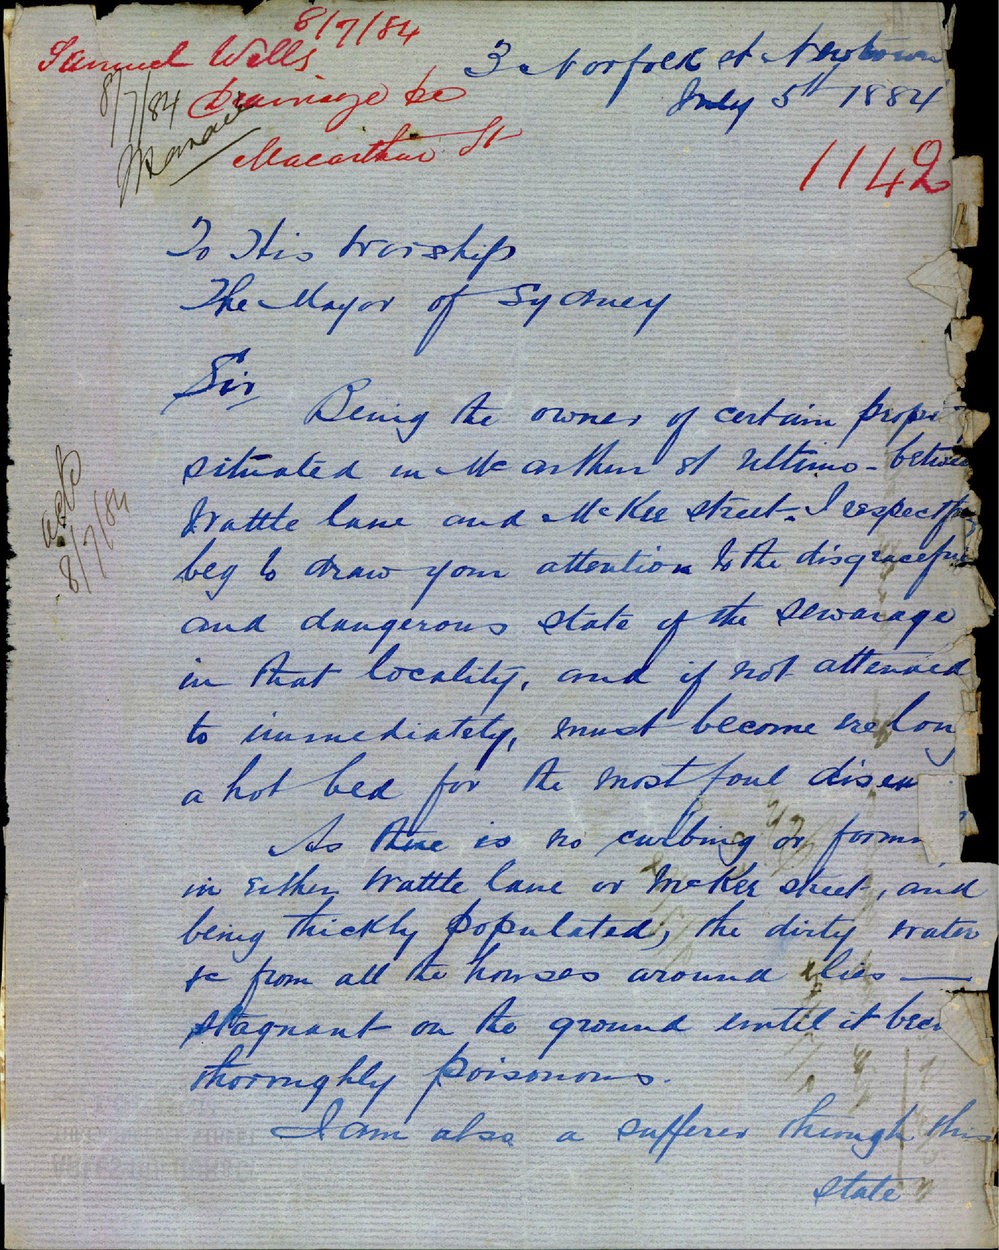 8/7/84
Samuel Wells
Drainage &c
Macarthur St
8/7/84
3 Norfolk st Newtown
July 5th 1884
1142
To His Worship
The Mayor of Sydney
Sir
Being the owner of certain prope
situated in McArthur st Ultimo - betwe
Wattle lane and McKee street. I respectf
beg to draw your attention to the disgracefu
and dangerous state of the sewarage
in that locality, and if not attended
to immediately, must become ere long
a hot bed for the most foul disea
As there is no curbing or formin
in either Wattle lane or McKee street, and
being thickly populated, the dirty water
&c from all the houses around lies —
stagnant on the ground until it bec
thoroughly poisonous.
I am also a sufferer through this
state
8/7/84